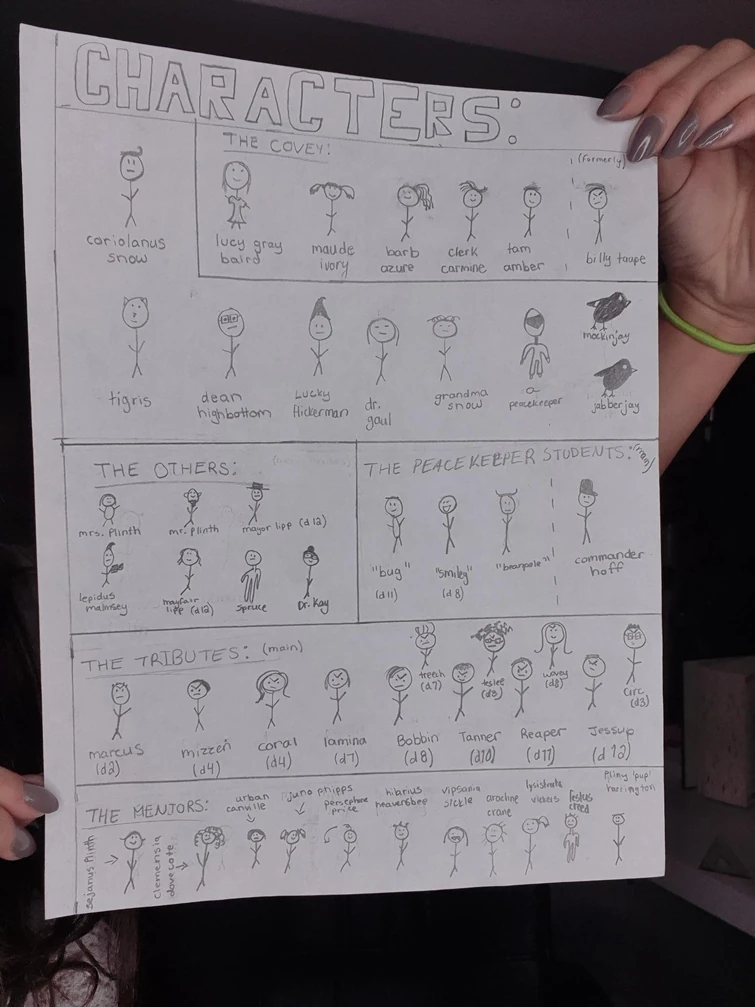 CHARACTERS:
coriolanus
snow
THE COVEY:
lucy gray
baird
maude
ivory
barb
azure
clerk
carmine
tam
amber
(formerly)
billy taupe
tigris
dean
highbottom
Lucky
flickerman
dr.
gaul
grandma
snow
a
peacekeeper
mockinjay
jabberjay
THE OTHERS:
mrs. plinth
mr. plinth
mayor lipp (d12)
lepidus
malmsey
mayfair
lipp (d12)
spruce
Dr. Kay
THE PEACEKEEPER STUDENTS: (main)
"bug"
(d11)
"smiley"
(d8)
"beanpole"
commander
hoff
THE TRIBUTES: (main)
treech
(d7)
teslee
(d3)
wovey
(d8)
circ
(d3)
marcus
(d2)
mizzen
(d4)
coral
(d4)
lamina
(d7)
Bobbin
(d8)
Tanner
(d10)
Reaper
(d11)
Jessup
(d12)
THE MENTORS:
sejanus Plinth
clemensia
dovecote
urban
canville
juno phipps
persephone
price
hilarius
heavensbee
vipsania
sickle
arachne
crane
lysistrata
vickers
festus
creed
Pliny 'pup'
harrington